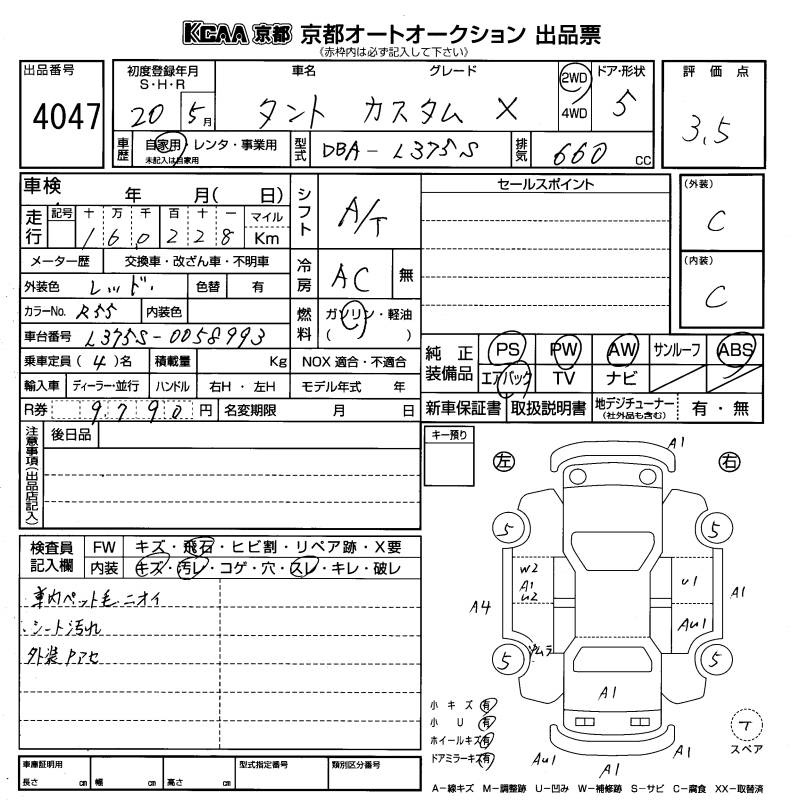 KCAA 京都 京都オートオークション 出品票
《赤枠内は必ず記入して下さい》
出品番号 初度登録年月 車名 グレード 2WD ドア・形状 評価点
S・H・R
4047 20 5月 タント カスタム X 4WD 5 3.5
車歴 自家用・レンタ・事業用 型式 DBA-L375S 排気 660 CC
未記入は自家用
車検 年 月( 日) シフト A/T セールスポイント (外装)
走行 記号 十 万 千 百 十 一 マイル C
1 6 0 2 2 8 Km
メーター歴 交換車・改ざん車・不明車 冷房 AC 無 (内装)
外装色 レッド 色替 有 C
カラーNo. R55 内装色 燃料 ガソリン・軽油
車台番号 L375S-0058993 ( )
乗車定員 (4)名 積載量 Kg NOX 適合・不適合 純正装備品 PS PW AW サンルーフ ABS
輸入車 ディーラー・並行 ハンドル 右H・左H モデル年式 年 エアバック TV ナビ
R券 9790 円 名変期限 月 日 新車保証書 取扱説明書 地デジチューナー 有・無
(社外品も含む)
注意事項(出品店記入) 後日品 キー預り
左 右
A1
検査員記入欄 FW キズ・飛石・ヒビ割・リペア跡・X要
内装 キズ・汚レ・コゲ・穴・スレ・キレ・破レ
車内ペット毛ニオイ
・シート汚れ
外装 アセ
5 5
W2
A1 U1
U2 A1
A4 AU1
5 5
A1
小キズ 有
小U 有
ホイールキズ 有
ドアミラーキズ 有
T
スペア
AU1 A1 A1
車庫証明用 型式指定番号 類別区分番号
長さ cm 幅 cm 高さ cm
A−線キズ M−調整跡 U−凹み W−補修跡 S−サビ C−腐食 XX−取替済